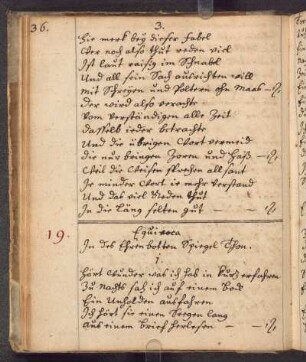 36.
3.
Hie merk bey dieser Fabel
Wer noch also thut reden viel
Ist laut raisig im Schnabel
Und all sein Sach ausrichten will
mit Schreyen und Poltern ohn Maas
der wird also veracht
vom verständigen alle Zeit
dasselb ieder betrachte
Und die übrigen Wort vermeid
die nur bringen Zoren und Haß
Weil die Weisen sprechen all sant
Je minder Wort ie mehr verstand
Und das viel Reden thut
In die Läng selten gut
19.
Equivoca
In deß Ehrenbotten Spiegel Thon.
1
Hört Wunder was ich hab in kurz erfahren
Zu Nachts sah ich auf einem Bock
Ein Unholden ausfahren
Ich hört sie einen Seegen lang
Aus einem Brief herlesen